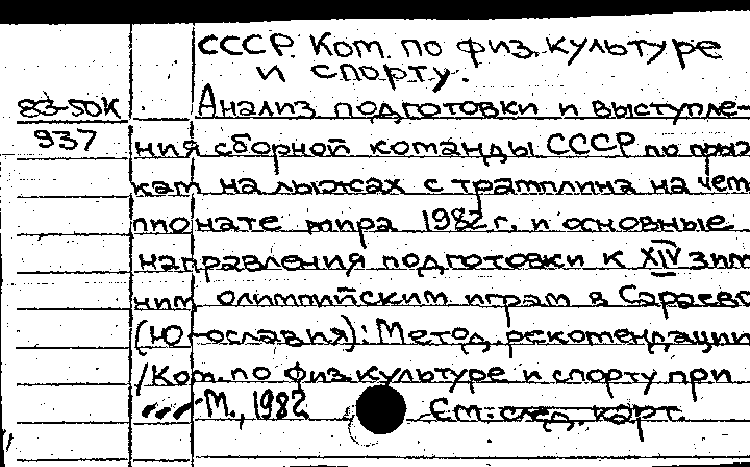 СССР. Ком. по физ. культуре
и спорту.
83-50К
937
Анализ подготовки и выступле-
ния сборной команды СССР по прыж
кам на лыжах с трамплина на чем
пионате мира 1982 г. и основные
направления подготовки к XIV зим
ним олимпийским играм в Сараево
(Югославия): Метод. рекомендации
/Ком. по физ. культуре и спорту при
М., 1982 См. след. карт.